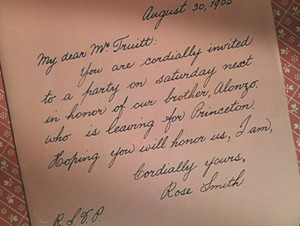 August 30, 1903
My dear Mr Truitt:
You are cordially invited
to a party on Saturday next
in honor of our brother, Alonzo,
who is leaving for Princeton.
Hoping you will honor us, I am,
Cordially yours,
Rose Smith
R. S. V. P.